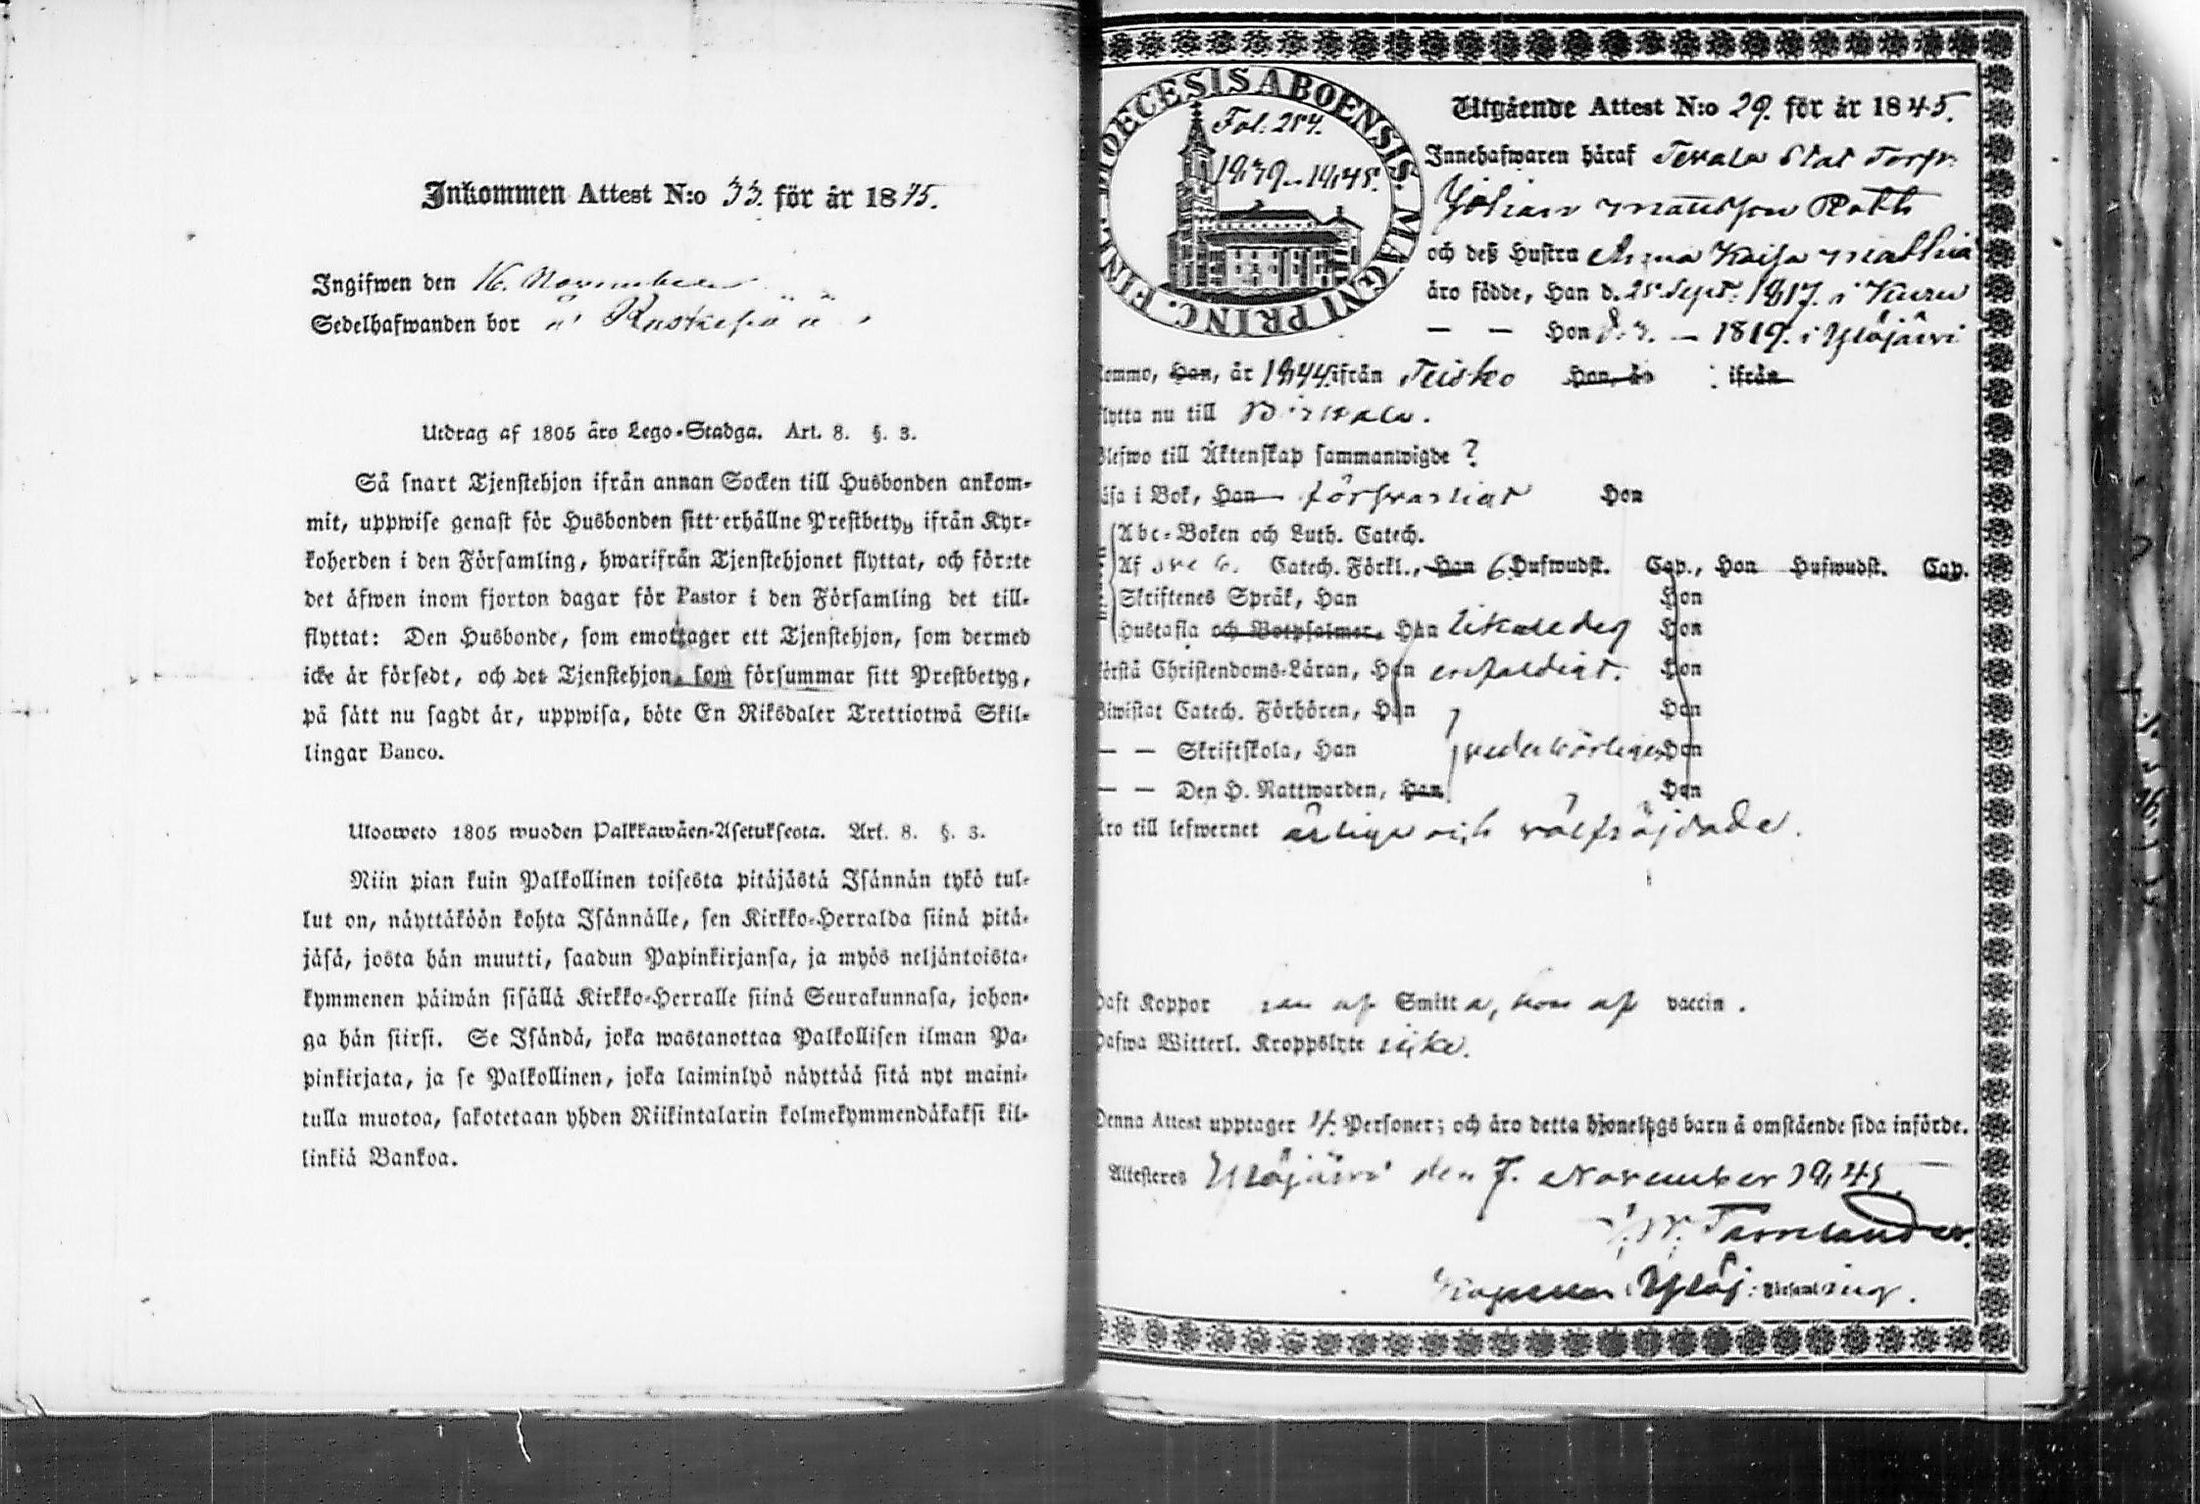 Inkommen Attest N:o 33. för år 1845.
Ingifwen den 16. November
Sedelhafwanden bor
Utdrag af 1805 åro Lego-Stadga. Art. 8. §. 3.
Så snart Tjenstehjon ifrån annan Socken till Husbonden ankom-
mit, uppwise genast för Husbonden sitt erhållne Prestbetyg ifrån Kyr-
koherden i den Församling, hwarifrån Tjenstehjonet flyttat, och förete
det åfwen inom fjorton dagar för Pastor i den Församling det till-
flyttat: Den Husbonde, som emottager ett Tjenstehjon, som dermed
icke år försedt, och det Tjenstehjon, som försummar sitt Prestbetyg,
på sått nu sagdt år, uppwisa, böte En Riksdaler Trettiotwå Skil-
lingar Banco.
Uloosweto 1805 wuoden Palkkawåen-Asetuksesta. Art. 8. §. 3.
Niin pian kuin Palkollinen toisesta pitåjåstå Isånnån tykö tul-
lut on, nåyttåköön kohta Isånnålle, sen Kirkko-Herralda siinå pitå-
jåså, josta hån muutti, saadun Papinkirjansa, ja myös neljåntoista-
kymmenen påiwån sisållå Kirkko-Herralle siinå Seurakunnasa, johon-
ga hån siirsi. Se Isåndå, joka wastanottaa Palkollisen ilman Pa-
pinkirjata, ja se Palkollinen, joka laiminlyö nåyttåå sitå nyt maini-
tulla muotoa, sakotetaan yhden Riikintalarin kolmekymmendåkaksi kil-
linkiå Bankoa.
DIOECESIS ABOENSIS. MAGNI PRINC. FINL.
Fol. 254.
1839-1845.
Utgående Attest N:o 29. för år 1845.
Innehafwaren håraf Terala Stat Torp.
Johan Mattsson Roth
och deß Hustru Anna Kaisa Matths
åro födde, Han d. 25 Sept. 1817. i Kuru
— — Hon d. 3. — 1819. i Ylöjärvi
kommo, Han, år 1844 ifrån Teisko Hon, år ifrån
flytta nu till Birkala.
Blefwo till Åktenskap sammanwigde ?
låsa i Bok, Han försvarligt Hon
Abc-Boken och Luth. Catech.
Af Catech. Förkl., Han 6 Hufwudst. Cap., Hon Hufwudst. Cap.
Skriftenes Språk, Han Hon
Hustafla och Botpsalmer, Han likaledes Hon
förstå Christendoms-Låran, Han enfaldigt. Hon
Biwistat Catech. Förhören, Han Hon
— — Skriftskola, Han vederbörligen Hon
— — Den H. Nattwarden, Han Hon
åro till lefwernet ärliga och välfräjdade.
Haft Koppor han af Smitta, hon af vaccin.
Hafwa Witterl. Kroppslyte icke.
Denna Attest upptager 4. Personer; och åro detta hjonelags barn å omstående sida införde.
Attesteres Ylöjärvi den 7. November 1845.
Tarvelander.
Kapellan i Ylöj: Församling.